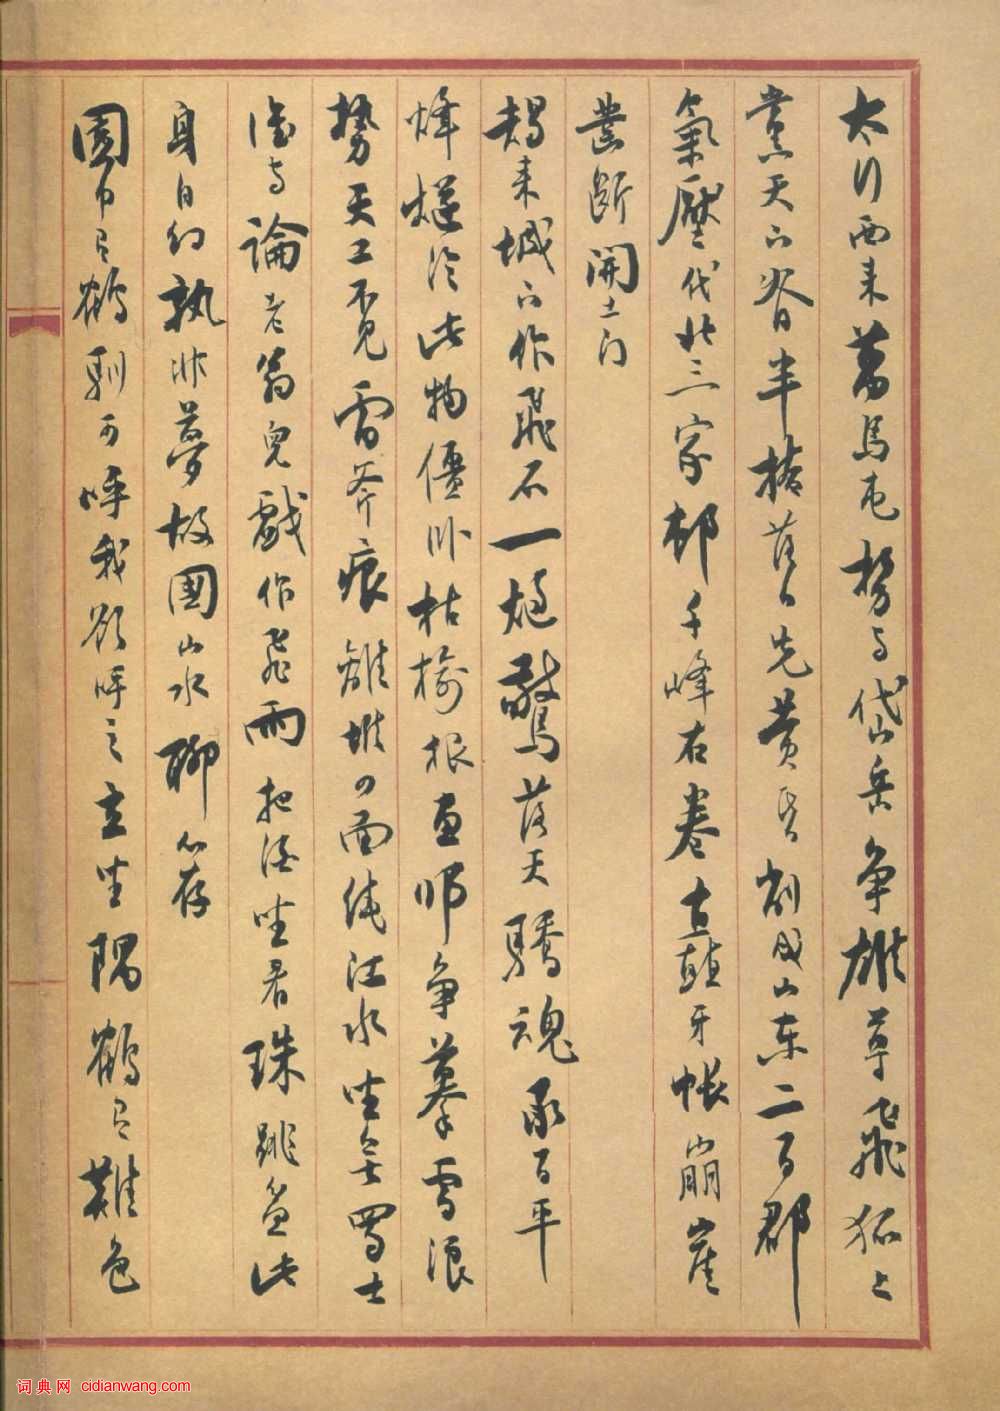 太行西来萬馬屯勢与岱岳争雄尊飛狐上
黨天下脊半掩落日先黄昏削成山東二百郡
氣壓代北三家邨千峰右卷矗牙帳崩崖
鑿斷開土门
朅来城下作飛石一炮驚落天驕魂承百平
烽燧冷此物僵卧枯榆根画師争摹雪浪
勢天工不見雷斧痕離堆四面繞江水坐無蜀士
誰与論老翁兒戲作飛雨把酒坐看珠跳盆此
身自幻孰非夢故國山水聊心存
園中有鶴馴可呼我欲呼之立坐隅鶴有難色
词典网 cidianwang.com